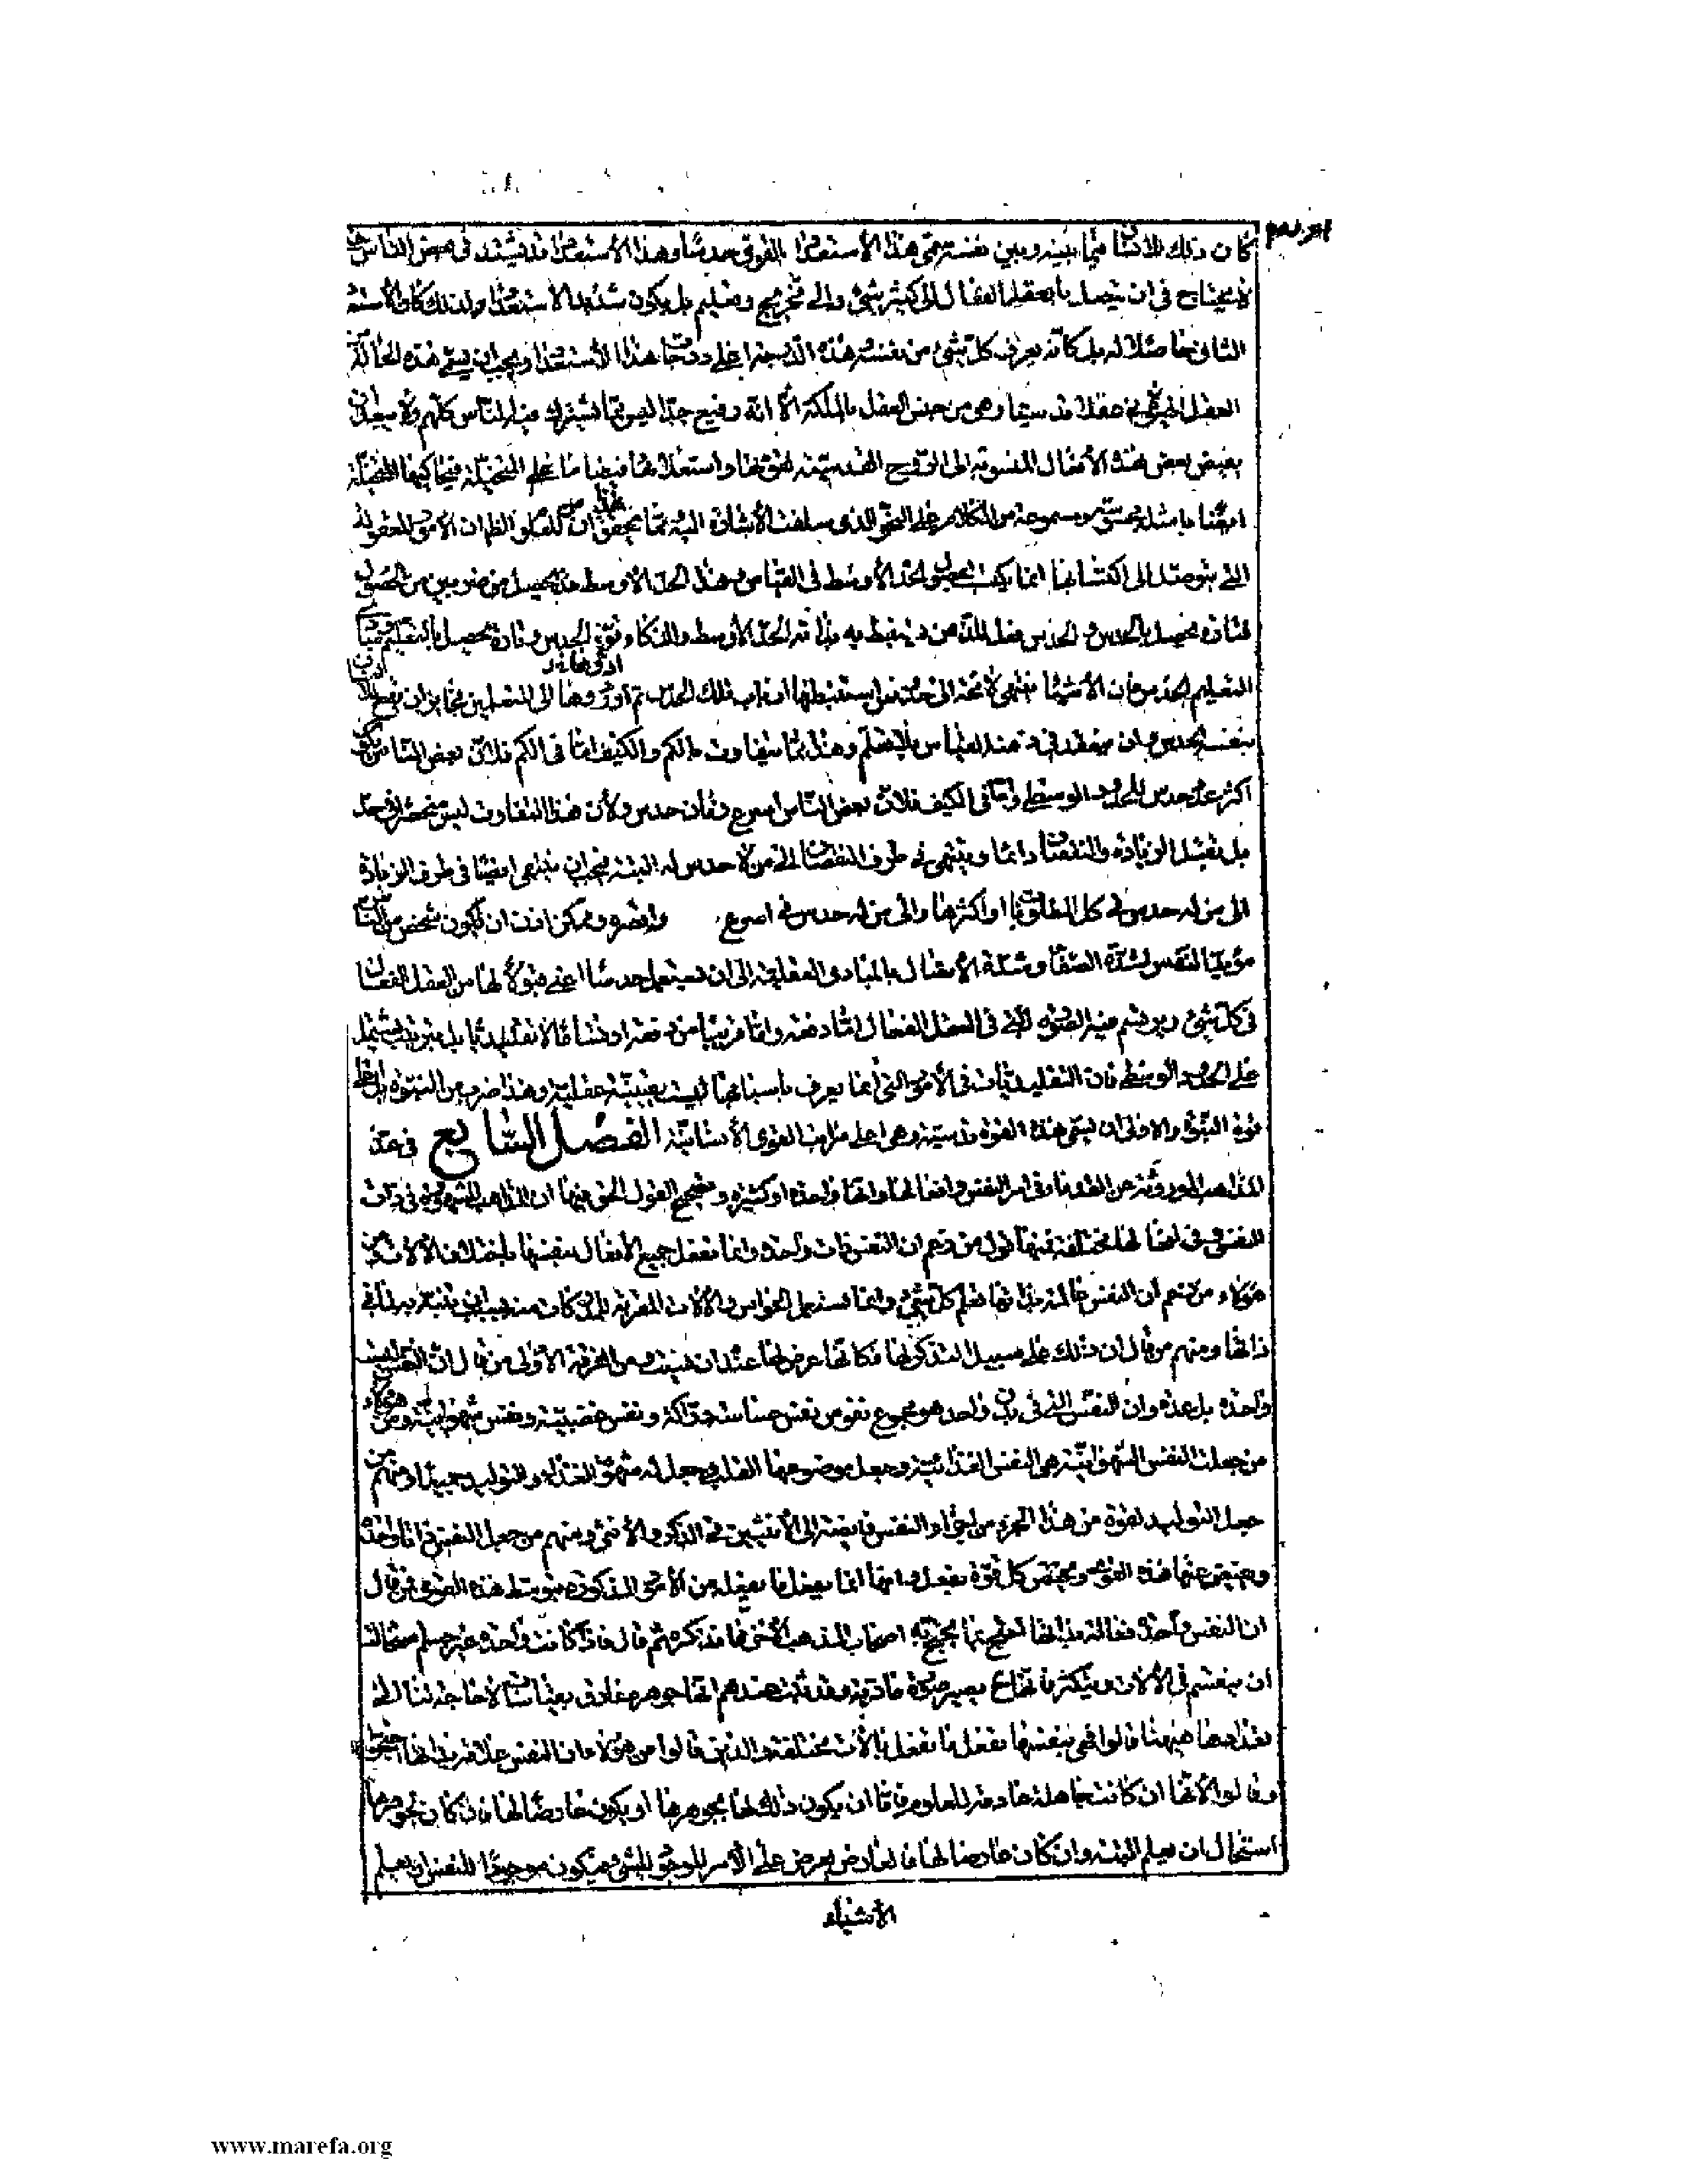 كان ذلك للانسان فيما بينه وبين نفسه سمى هذا الاستعداد القوى حدسا وهذا الاستعداد قد يشتد فى بعض الناس حتى
لا يحتاج فى ان يتصل بالعقل الفعال الى كثير شىء والى تخريج وتعليم بل يكون شديد الاستعداد لذلك كان الاستعداد
الثانى حاصل له بل كانه يعرف كل شىء من نفسه وهذه الدرجة اعلى درجات هذا الاستعداد ويجب ان يسمى هذه الحالة من
العقل الهيولانى عقلا قدسيا وهى من جنس العقل بالملكة الا انه رفيع جدا ليس مما يشترك فيه الناس كلهم ولا يبعد ان
يفيض بعض هذه الافعال المنسوبة الى الروح القدسية لقوتها واستعلائها فيضانا على المتخيلة فيحاكيها المتخيلة
ايضا بامثلة محسوسة ومسموعة من الكلام على النحو الذى سلفت الاشارة اليه مما يحقق هذا ان المعلوم الظاهر ان الامور المعقولة
التى يتوصل الى اكتسابها انما يكتسب بحصول الحد الاوسط فى القياس وهذا الحد الاوسط قد يحصل من ضربين من الحصول
فتارة يحصل بالحدس والحدس فعل للذهن يستنبط به بذاته الحد الاوسط والذكاء قوة الحدس وتارة يحصل بالتعليم ومبادى
التعليم الحدس فان الاشياء ينتهى لا محالة الى حدوس استنبطها ارباب تلك الحدوس ثم ادوها الى المتعلمين فجائز ان يقع للانسان
بنفسه الحدس وان ينعقد فى ذهنه القياس بلا معلم وهذا مما يتفاوت بالكم والكيف اما فى الكم فلان بعض الناس يكون
اكثر عدد حدس للحدود الوسطى واما فى الكيف فلان بعض الناس اسرع زمان حدس ولان هذا التفاوت ليس منحصرا فى حد
بل يقبل الزيادة والنقصان دائما وينتهى فى طرف النقصان الى من لا حدس له البتة فيجب ان ينتهى ايضا فى طرف الزيادة
الى من له حدس فى كل المطلوبات او اكثرها والى من له حدس فى اسرع وقت واقصره وممكن اذن ان يكون شخص من الناس
مؤيد النفس لشدة الصفاء وشدة الاتصال بالمبادى العقلية الى ان يشتعل حدسا اعنى قبولا لها من العقل الفعال
فى كل شىء ويرتسم فيه الصور التى فى العقل الفعال اما دفعة واما قريبا من دفعة ارتساما لا تقليديا بل بترتيب يشتمل
على الحدود الوسطى فان التقليديات فى الامور التى انما يعرف باسبابها ليست يقينية عقلية وهذا ضرب من النبوة بل اعلى
قوة النبوة والاولى ان يسمى هذه القوة قدسية وهى اعلى مراتب القوى الانسانية الفصل السابع فى عد
المذاهب الموروثة عن القدماء فى امر النفس وافعالها وانها واحدة او كثيرة وتصحيح القول الحق فيها ان المذاهب المشهورة فى ذات
النفس وفى افعالها مختلفة فمنها قول من زعم ان النفس ذات واحدة وانها تفعل جميع الافعال بنفسها باختلاف الالات ومن
هؤلاء من زعم ان النفس عالمة بذاتها تعلم كل شىء وانما يستعمل الحواس والالات المقربة للمدركات منها بسبب ان يتنبه به لما فى
ذاتها ومنهم من قال ان ذلك على سبيل التذكر لها فكانها عرض لها عندان نسيت ومن الفرقة الاولى من قال ان النفس ليست
واحدة بل عدة وان النفس التى فى بدن واحد هو مجموع نفوس نفس حساسة دراكة ونفس غضبية ونفس شهوانية ومن هؤلاء
من جعل النفس الشهوانية هى النفس الغذائية وجعل موضوعها القلب وجعل له شهوة الغذاء والتوليد جميعا ومنهم من
جعل التوليد لقوة من هذا الجزء من اجزاء النفس فايضة الى الانثيين فى الذكر والانثى ومنهم من جعل النفس ذاتا واحدة
ويفيض عنها هذه القوى ويختص كل قوة بفعل وانها انما يفعل ما يفعله من الامور المذكورة بتوسط هذه القوى فمن قال
ان النفس واحدة فعالة بذاتها احتج بما يحتج به اصحاب المذهب الاخير مما نذكره ثم قال فاذا كانت واحدة غير جسم استحال
ان ينقسم فى الالات ويتكثر فانها ح يصير صورة مادية وقد ثبت عندهم انها جوهر مفارق بقياسات لا حاجة لنا الى
تعدادها هيهنا قالوا فهى بنفسها تفعل ما تفعل بالات مختلفة والذين قالوا من هؤلاء ان النفس علامة بذاتها احتجوا
وقالوا لانها ان كانت جاهلة عادمة للعلوم فاما ان يكون ذلك لها بجوهرها او يكون عارضا لها فان كان بجوهرها
استحال ان يعلم البتة وان كان عارضا لها فالعارض يعرض على الامر الموجود للشىء فيكون موجودا للنفس ان يعلم
الاشياء
www.marefa.org